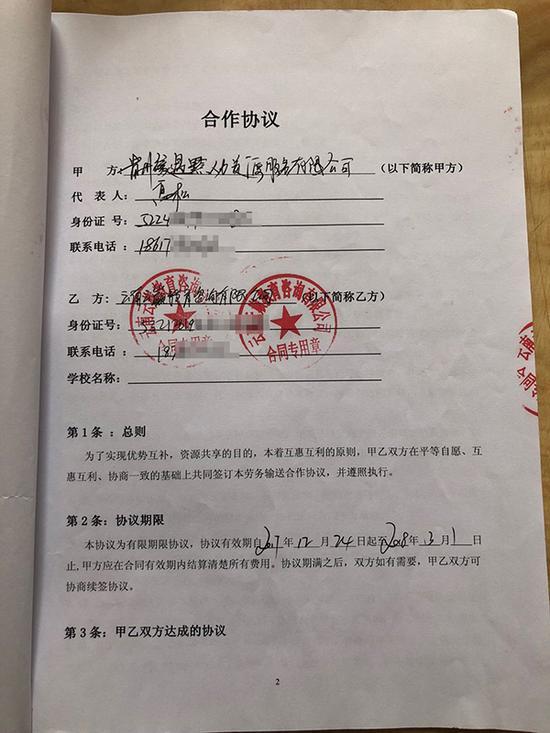 合作协议
甲 方: 人力资源服务有限公司 (以下简称甲方)
代 表 人:
身份证 号: 5224
联系电话 : 18617
乙 方: 教育咨询有限公司 (以下简称乙方)
身份证号:
联系电话 :
学校名称:
教育咨询有限公司
合同专用章
第 1 条 : 总则
为了实现优势互补,资源共享的目的,本着互惠互利的原则,甲乙双方在平等自愿、互
惠互利、协商一致的基础上共同签订本劳务输送合作协议,并遵照执行。
第 2 条: 协议期限
本协议为有限期限协议,协议有效期自2017年12月24日起至2018年3月1日
止,甲方应在合同有效期内结算清楚所有费用。协议期满之后,双方如有需要,甲乙双方可
协商续签协议。
第 3 条: 甲乙双方达成的协议
2